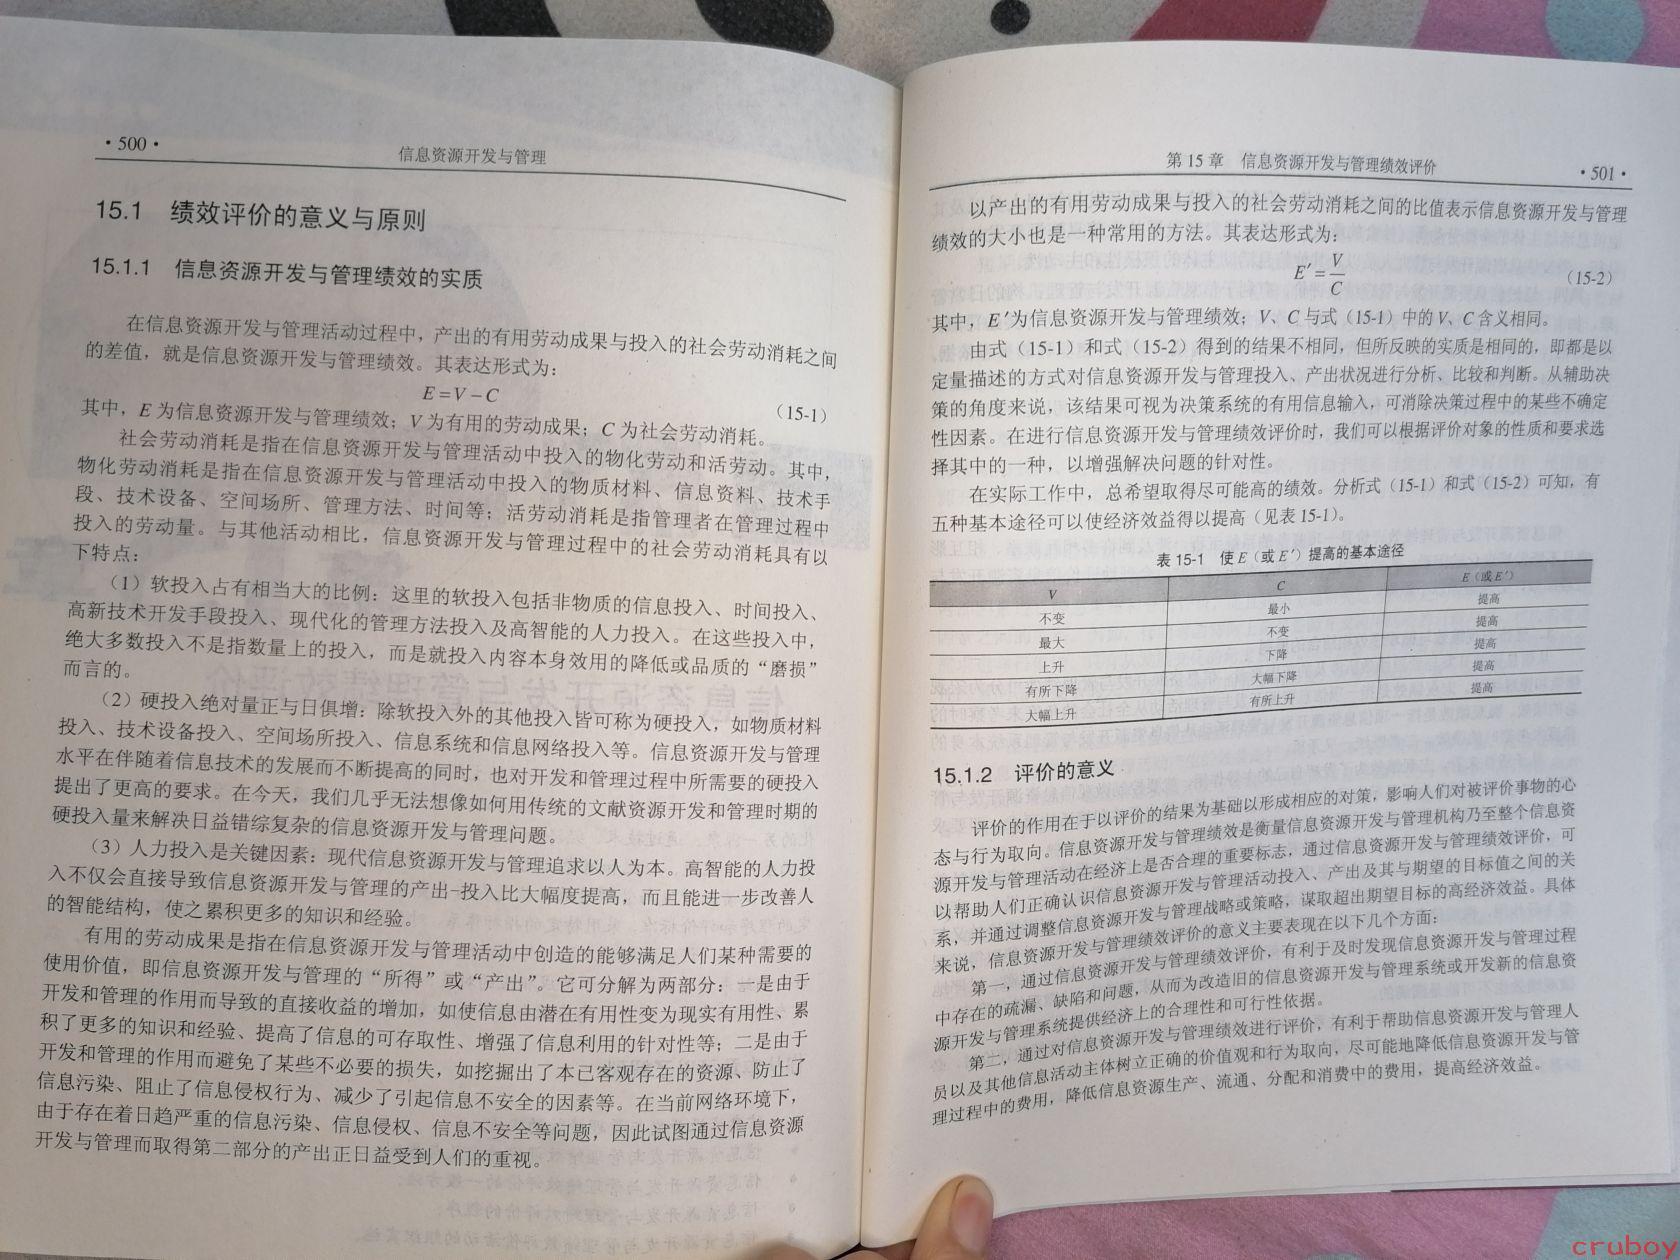 ·500·
信息资源开发与管理
15.1 绩效评价的意义与原则
15.1.1 信息资源开发与管理绩效的实质
在信息资源开发与管理活动过程中，产出的有用劳动成果与投入的社会劳动消耗之间
的差值，就是信息资源开发与管理绩效。其表达形式为：
E=V-C
(15-1)
其中，E为信息资源开发与管理绩效；V为有用的劳动成果；C为社会劳动消耗。
社会劳动消耗是指在信息资源开发与管理活动中投入的物化劳动和活劳动。其中，
物化劳动消耗是指在信息资源开发与管理活动中投入的物质材料、信息资料、技术手
段、技术设备、空间场所、管理方法、时间等；活劳动消耗是指管理者在管理过程中
投入的劳动量。与其他活动相比，信息资源开发与管理过程中的社会劳动消耗具有以
下特点：
（1）软投入占有相当大的比例：这里的软投入包括非物质的信息投入、时间投入、
高新技术开发手段投入、现代化的管理方法投入及高智能的人力投入。在这些投入中，
绝大多数投入不是指数量上的投入，而是就投入内容本身效用的降低或品质的“磨损”
而言的。
（2）硬投入绝对量正与日俱增：除软投入外的其他投入皆可称为硬投入，如物质材料
投入、技术设备投入、空间场所投入、信息系统和信息网络投入等。信息资源开发与管理
水平在伴随着信息技术的发展而不断提高的同时，也对开发和管理过程中所需要的硬投入
提出了更高的要求。在今天，我们几乎无法想像如何用传统的文献资源开发和管理时期的
硬投入量来解决日益错综复杂的信息资源开发与管理问题。
（3）人力投入是关键因素：现代信息资源开发与管理追求以人为本。高智能的人力投
入不仅会直接导致信息资源开发与管理的产出-投入比大幅度提高，而且能进一步改善人
的智能结构，使之累积更多的知识和经验。
有用的劳动成果是指在信息资源开发与管理活动中创造的能够满足人们某种需要的
使用价值，即信息资源开发与管理的“所得”或“产出”。它可分解为两部分：一是由于
开发和管理的作用而导致的直接收益的增加，如使信息由潜在有用性变为现实有用性、累
积了更多的知识和经验、提高了信息的可存取性、增强了信息利用的针对性等；二是由于
开发和管理的作用而避免了某些不必要的损失，如挖掘出了本已客观存在的资源、防止了
信息污染、阻止了信息侵权行为、减少了引起信息不安全的因素等。在当前网络环境下，
由于存在着日趋严重的信息污染、信息侵权、信息不安全等问题，因此试图通过信息资源
开发与管理而取得第二部分的产出正日益受到人们的重视。
第15章 信息资源开发与管理绩效评价
·501·
以产出的有用劳动成果与投入的社会劳动消耗之间的比值表示信息资源开发与管理
绩效的大小也是一种常用的方法。其表达形式为：
E′=V/C
(15-2)
其中，E′为信息资源开发与管理绩效；V、C与式（15-1）中的V、C含义相同。
由式（15-1）和式（15-2）得到的结果不相同，但所反映的实质是相同的，即都是以
定量描述的方式对信息资源开发与管理投入、产出状况进行分析、比较和判断。从辅助决
策的角度来说，该结果可视为决策系统的有用信息输入，可消除决策过程中的某些不确定
性因素。在进行信息资源开发与管理绩效评价时，我们可以根据评价对象的性质和要求选
择其中的一种，以增强解决问题的针对性。
在实际工作中，总希望取得尽可能高的绩效。分析式（15-1）和式（15-2）可知，有
五种基本途径可以使经济效益得以提高（见表15-1）。
表15-1 使E（或E′）提高的基本途径
V C E（或E′）
不变 最小 提高
最大 不变 提高
上升 下降 提高
有所下降 大幅下降 提高
大幅上升 有所上升 提高
15.1.2 评价的意义
评价的作用在于以评价的结果为基础以形成相应的对策，影响人们对被评价事物的心
态与行为取向。信息资源开发与管理绩效是衡量信息资源开发与管理机构乃至整个信息资
源开发与管理活动在经济上是否合理的重要标志，通过信息资源开发与管理绩效评价，可
以帮助人们正确认识信息资源开发与管理活动投入、产出及其与期望的目标值之间的关
系，并通过调整信息资源开发与管理战略或策略，谋取超出期望目标的高经济效益。具体
来说，信息资源开发与管理绩效评价的意义主要表现在以下几个方面：
第一，通过信息资源开发与管理绩效评价，有利于及时发现信息资源开发与管理过程
中存在的疏漏、缺陷和问题，从而为改造旧的信息资源开发与管理系统或开发新的信息资
源开发与管理系统提供经济上的合理性和可行性依据。
第二，通过对信息资源开发与管理绩效进行评价，有利于帮助信息资源开发与管理人
员以及其他信息活动主体树立正确的价值观和行为取向，尽可能地降低信息资源开发与管
理过程中的费用，降低信息资源生产、流通、分配和消费中的费用，提高经济效益。
cruboy